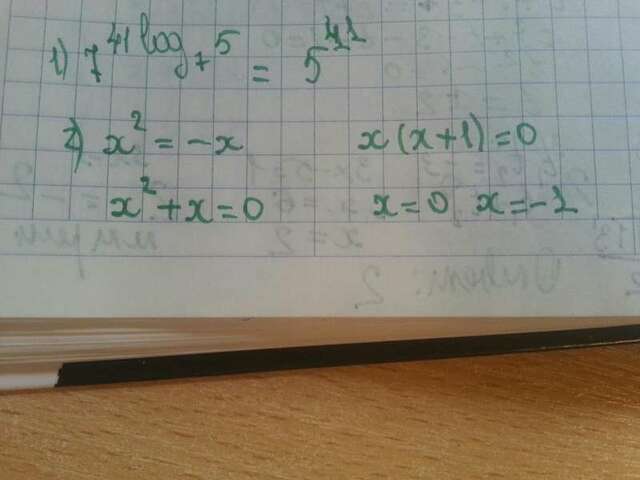 1) 7^41 log_7 5 = 5^41
2) x² = -x x(x+1)=0
x²+x=0 x=0 x=-1